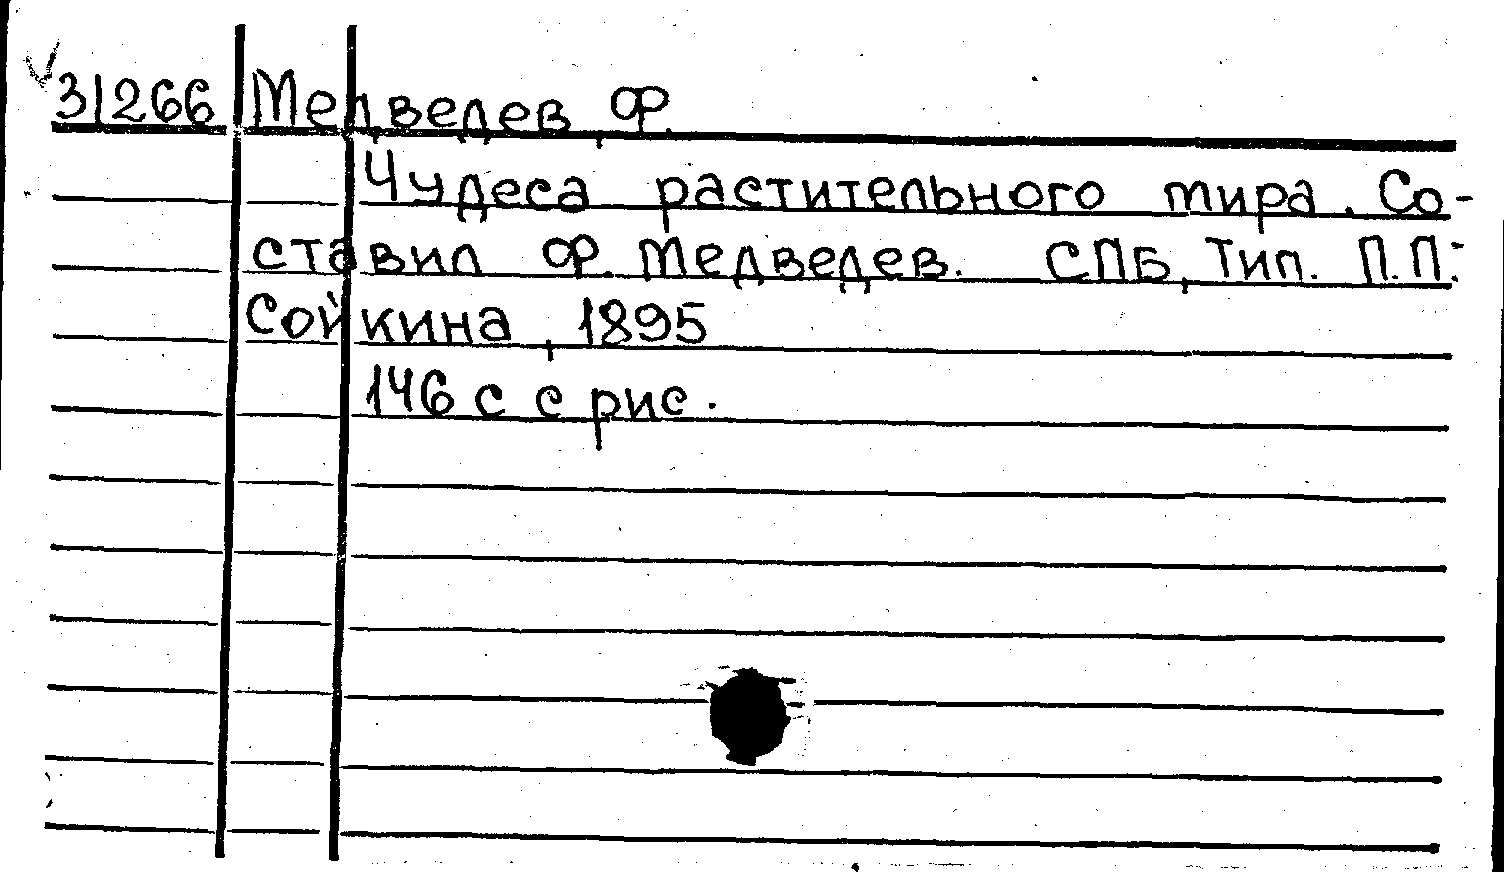 31266 Медведев, Ф.
Чудеса растительного мира. Со-
ставил Ф. Медведев. СПБ, Тип. П.П.
Сойкина, 1895
146 с с рис.